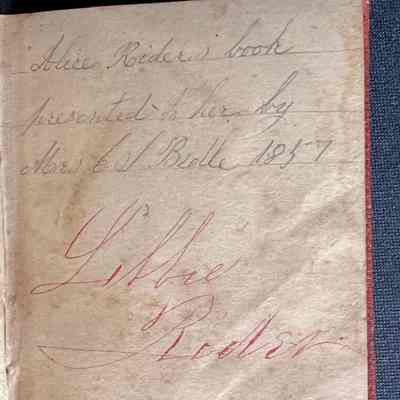 Alice Riders book
presented to her by
Mrs C S 1857
Libbie
Rider